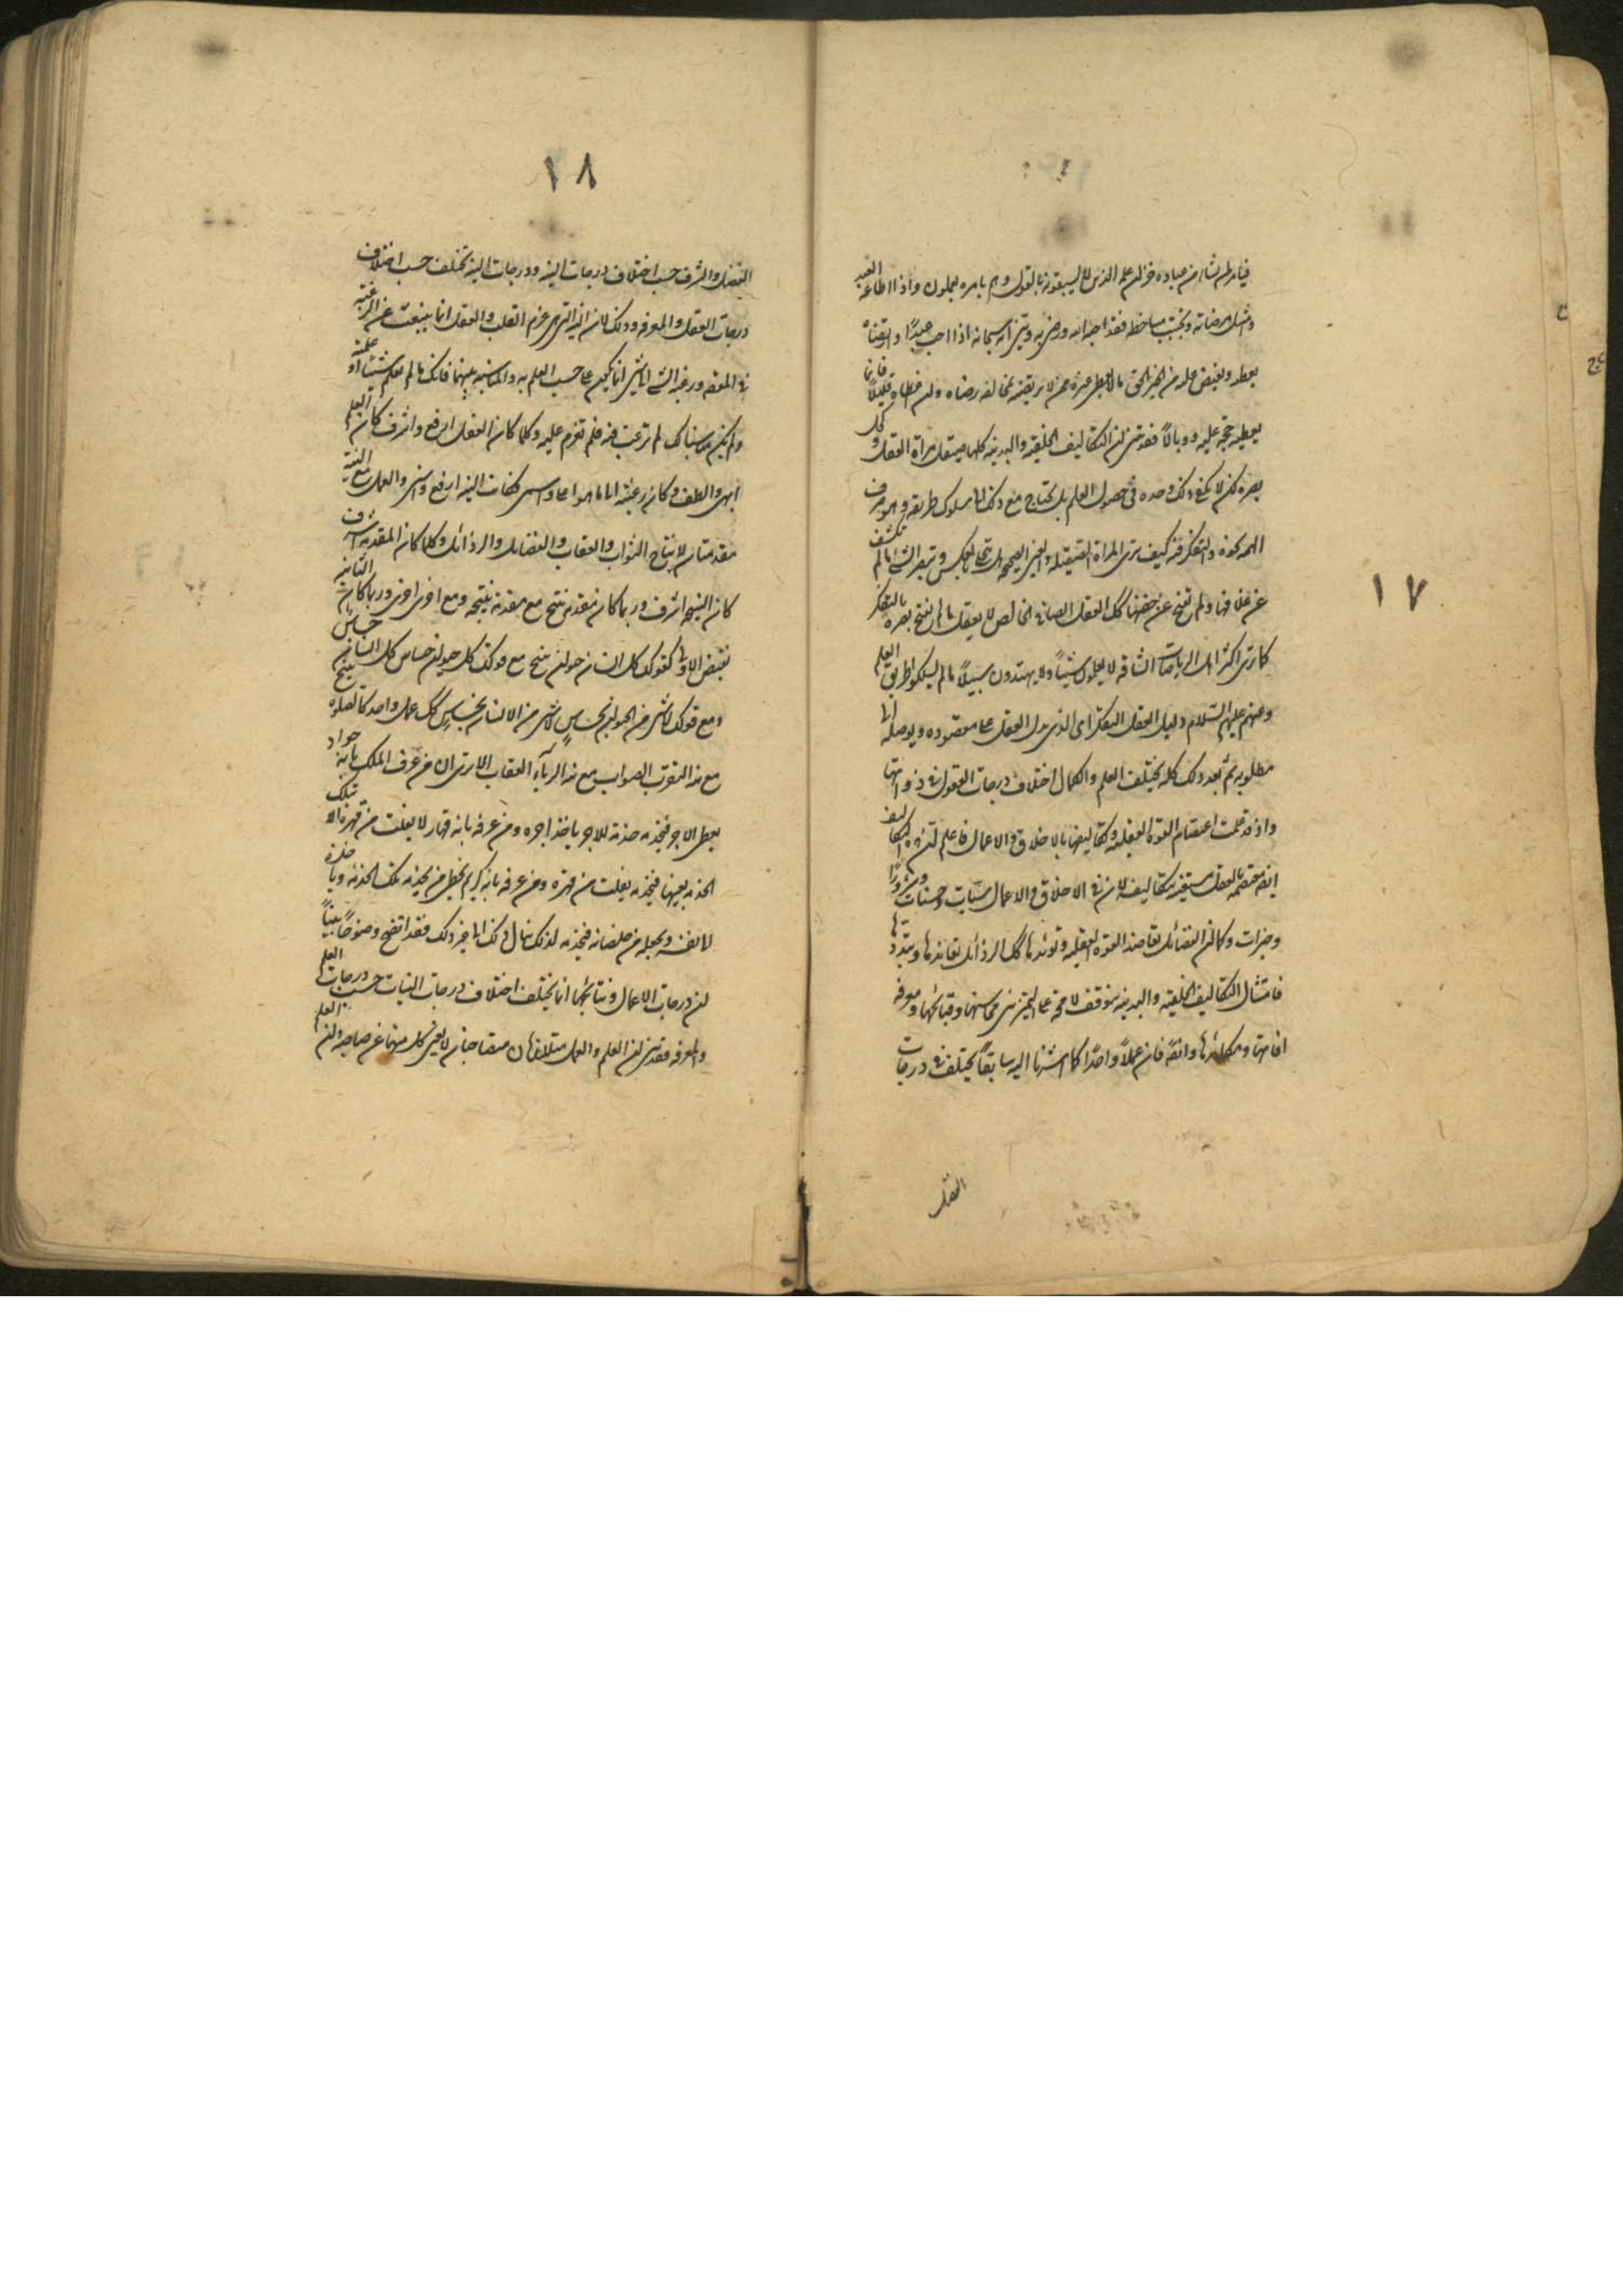 ١٧
فيامر لمن يشاء من عباده خزان علمه الذين لا يسبقونه بالقول وهم بامره يعملون واذا اطاعه العبد
وامتثل مرضاته ويجتنب مساخطه فقد احبه الله ورضي به ومتى انه سبحانه اذا احب عبدًا وارتضاه
يعطيه ويفيض عليه من الخير الحق ما لا يعطي غيره ممن لا يرتضيه لمخالفه رضاه ولئن اعطاه قليلًا فانما
يعطيه حجة عليه ووبالًا فقد تبين ان التكاليف الخلقية والبدنية كلها صيقل مراة العقل وكحل
بصره لكن لا يكفي ذلك وحده في حصول العلم بل يحتاج مع ذلك الى سلوك طريقه وهو صرف
الهم نحوه والتفكر فيه كيف ترى المراة الصقيلة والعين الصحيحة لا تنعكس وتبصر الشئ ما لم تكشف
عن غلافها ولم تفتح عن جفنها كك العقل الصافي الخالص لا يعقل ما لم يفتح بصره بالتفكر
كما ترى اكثر اهل الرياضات الشاقه لا يعلمون شيئًا ولا يهتدون سبيلًا ما لم يسلكوا طريق العلم
وعنهم عليهم السلام دليل العقل التفكر اي الذي يدل العقل على مقصوده ويوصله الى
مطلوبه ثم بعد ذلك كله يختلف العلم والكمال اختلاف درجات العقول في ذواتها
واذ قد علمت اعتصام القوة العقلية وتكاليفها بالاخلاق والاعمال فاعلم ان هذه التكاليف
ايضا معتصمه بالعقل مستقيمه بتكاليفه لان في الاخلاق والاعمال سيئات وحسنات وشرورًا
وخيرات وكما ان الفضائل تعاضد القوة العقلية وتؤيدها كك الرذائل تعاندها وتبددها
فامتثال التكاليف الخلقية والبدنية يتوقف لا محة على التميز بين محاسنها وقبائحها ومعرفه
افاتها ومكائدها وايضًا فان عملًا واحدًا كما اشرنا اليه سابقًا يختلف في درجات
الفضل
١٨
الفضل والشرف حسب اختلاف درجات النيه ودرجات النيه تختلف حسب اختلاف
درجات العقل والمعرفه وذلك لان النيه التي هي عزم القلب والعقل انما ينبعث عن الرغبة
في المقصد ورغبه الشئ الى شئ انما تكون على حسب العلم به والمناسبه بينهما فانك ما لم تعلم شيئًا او علمته
ولم يكن يناسبك لم ترغب فيه فلم تعزم عليه وكلما كان العقل ارفع واشرف كان العلم
ابهى والطف وكان رغبته الى ما هو اعلى واسنى فكانت النيه ارفع واسنى والعمل مع النية
مقدمتان لانتاج الثواب والعقاب والفضائل والرذائل وكلما كان المقدمه اشرف
كان النتيجه اشرف وربما كان مقدمه تنتج مع مقدمة نتيجه ومع اخرى اخرى وربما كان الثانيه
نقيض الاولى كقولك كل انسان حيوان ينتج مع قولك كل حيوان حساس كل انسان حساس
ومع قولك لا شئ من الحيوان بحساس لا شئ من الانسان بحساس كك عمل واحد كالصلوة ينتج
مع نيه التقرب الصواب مع نيه الرياء العقاب الا ترى ان من عرف الملك بانه جواد
يعطي الاجر فيخدمه خدمة للاجر ياخذ اجره ومن عرفه بانه قهار لا يفلت من قهره الا بتلك
الخدمه بعينها فيخدمه يفلت من قهره ومن عرفه بانه كريم يحظى من يخدمه بتلك الخدمة ويا خذه
لانفسه ويجعله من خلصانه فيخدمه لذلك ينال ذلك الى غير ذلك فقد اتضح وضوحًا بينًا
ان درجات الاعمال ونتائجها انما يختلف اختلاف درجات النيات حسب درجات العلم
والمعرفه فقد تبين ان العلم والعمل متلازمان متصاحبان لا يغني كل منهما عن صاحبه وان العلم